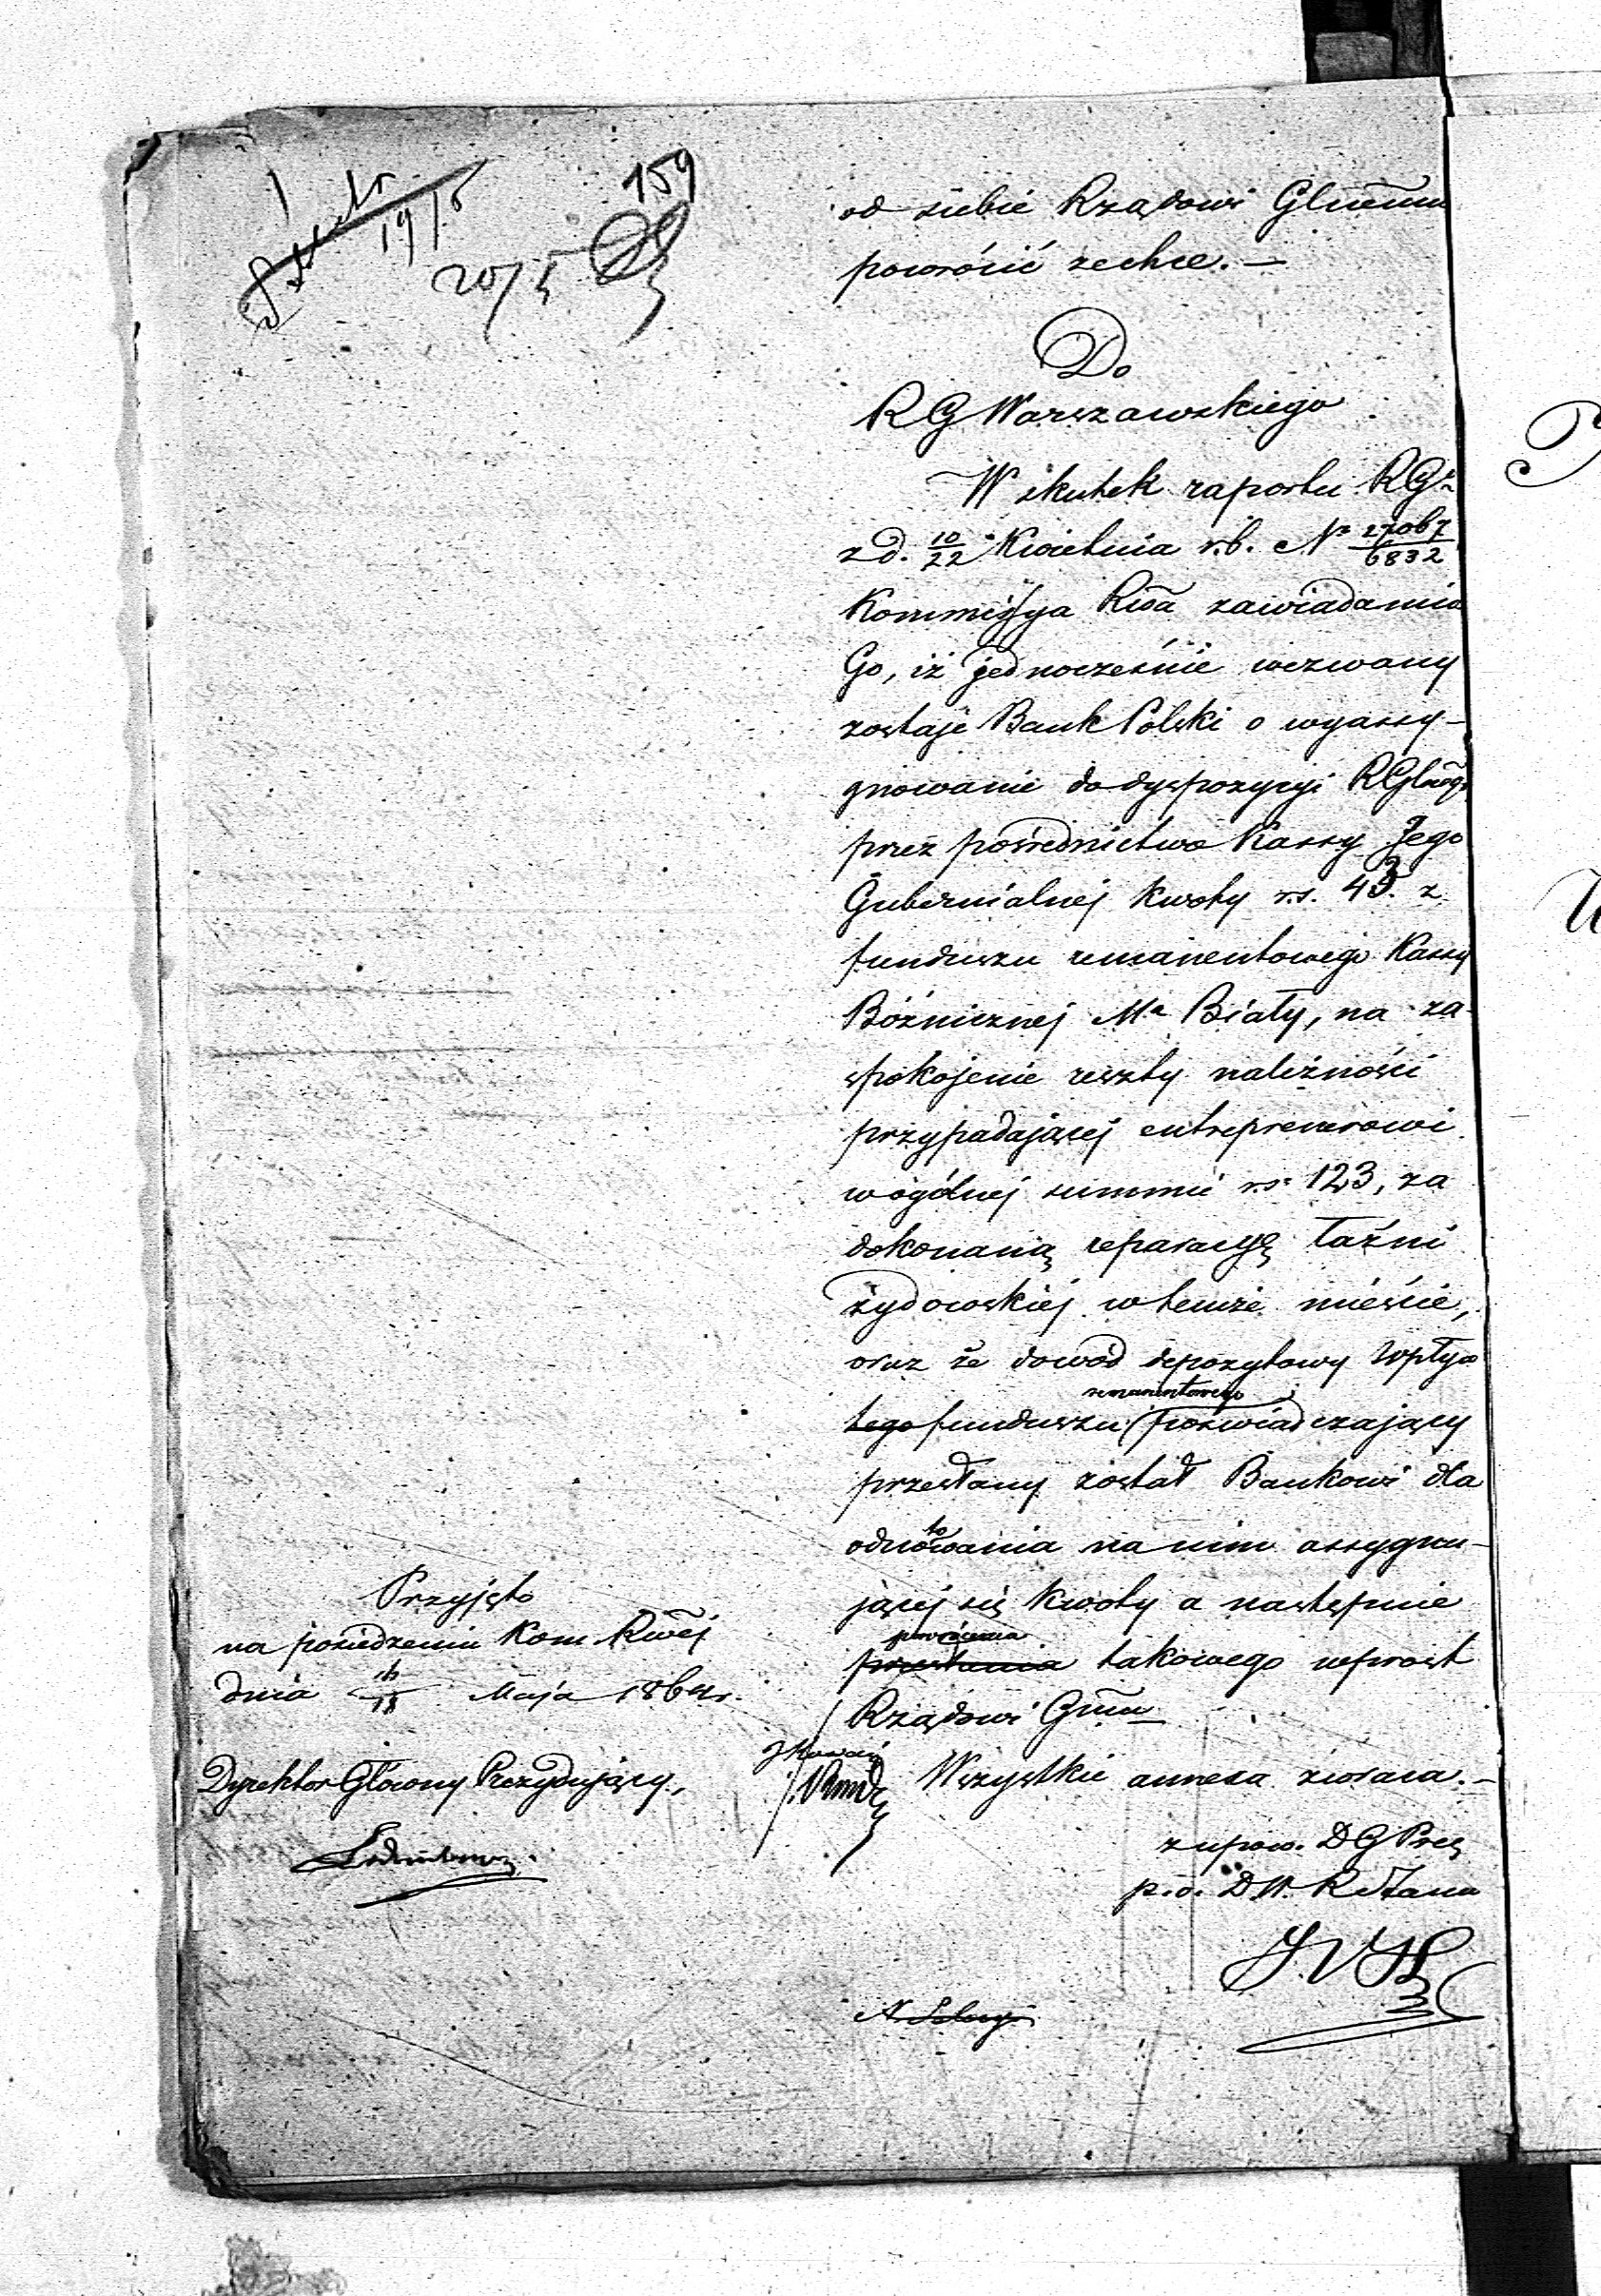 159
19/5
20/5
od siebie Rządowi Glnemu
powrócić zechce. —
Do
RG Warszawskiego
W skutek raportu RGo
z d. 10/22 Kwietnia r.b. No 27067/6832
Kommissya Rwa zawiadamia
Go, iż jednocześnie wezwany
zostaje Bank Polski o wyassy-
gnowanie do dyspozycyi RGlnego
przez pośrednictwo Kassy Jego
Gubernialnej kwoty r.s. 43. z
funduszu remanentowego Kassy
Bóźnicznej Ma Biały, na za-
spokojenie reszty należności
przypadającej entreprenerowi
w ogólnej summie rs. 123, za
dokonaną reparacyę łaźni
żydowskiej w temże mieście,
oraz że dowód depozytowy wpływ
remanentowego
tego funduszu poświadczający
przesłany został Bankowi dla
odnotowania na nim assygnu-
jącej się kwoty a następnie
powrócenia
przesłania takowego wprost
Rządowi Gmu
Wszystkie annexa zwraca. —
z upow. DG Prez
p.o. D.W.
Przyjęto
na posiedzeniu Kom. Rwéj
dnia Maja 1864 r.
Dyrektor Główny Prezydujący,